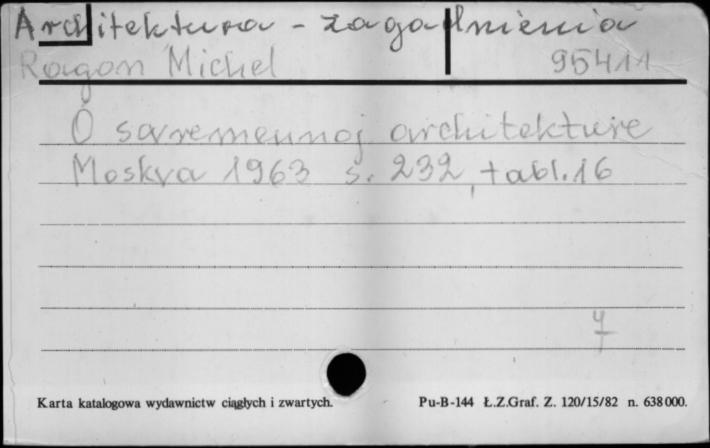 Architektura - zagadnienia
Ragon Michel 95411
O sovremennoj architekture
Moskva 1963 s. 232, tabl. 16
Karta katalogowa wydawnictw ciągłych i zwartych. Pu-B-144 Ł.Z.Graf. Z. 120/15/82 n. 638000.